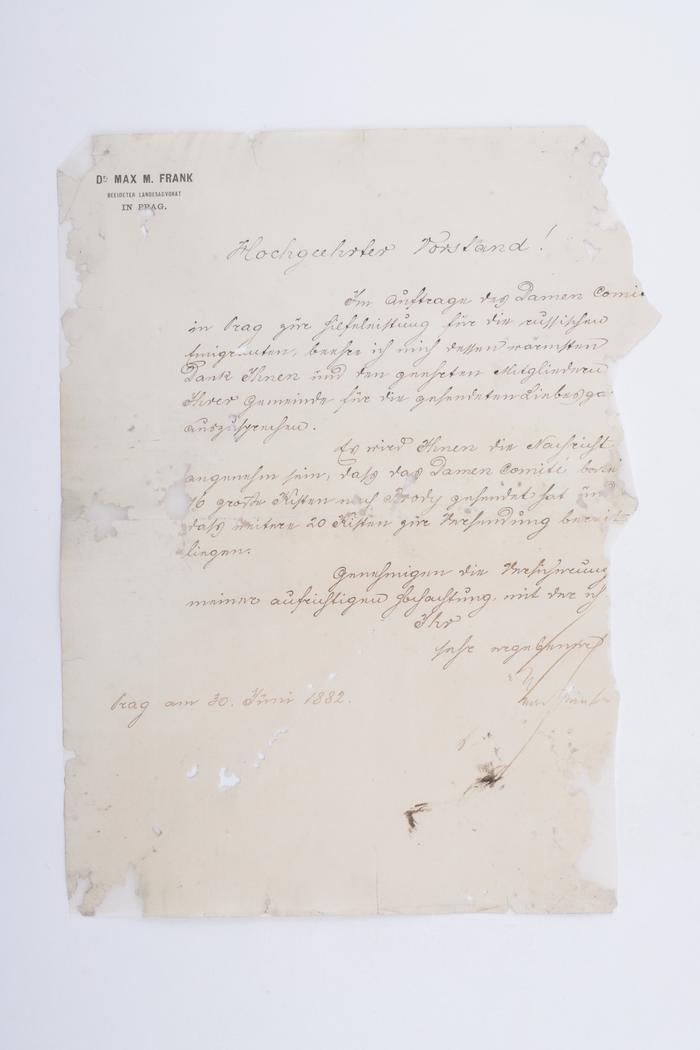 Dr. MAX M. FRANK
BEEIDETER LANDESADVOKAT
IN PRAG.
Hochgeehrter Vorstand!
Im Auftrage des Damen Comi
in Prag zur Hilfeleistung für die russischen
Emigranten, beehre ich mich dessen wärmsten
Dank Ihnen und den geehrten Mitgliedern
Ihrer Gemeinde für die gesendeten Liebesga
auszusprechen.
Es wird Ihnen die Nachricht
angenehm sein, daß das Damen Comité
große Kisten nach Brody gesendet hat und
daß weitere 20 Kisten zur Versendung bereit
liegen.
Genehmigen die Versicherung
meiner aufrichtigen Hochachtung, mit der ich
Ihr
sehr ergebener
Prag am 30. Juni 1882.